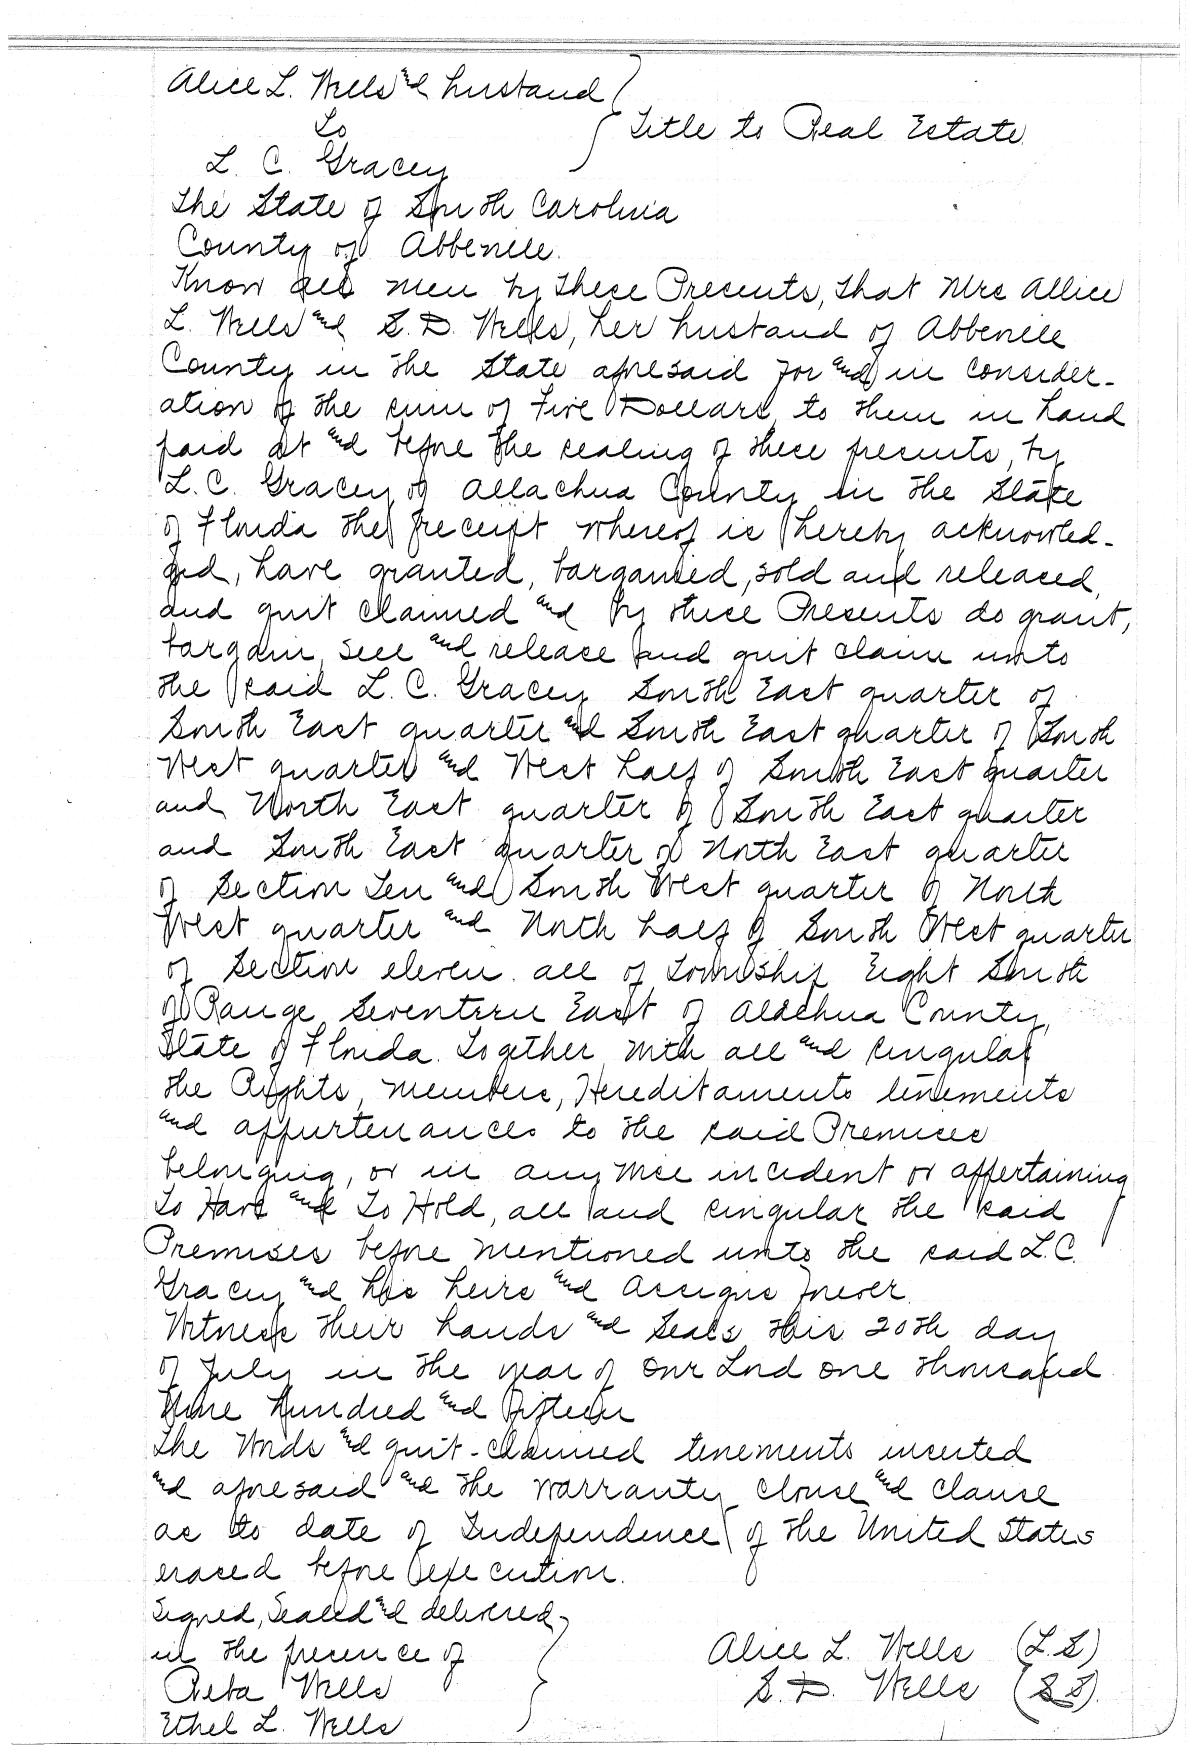 Alice L. Wells and husband
To
Title to Real Estate
L. C. Gracey
The State of South Carolina
County of Abbeville.
Know all men by these Presents, that Mrs Allice
L. Wells and S. D. Wells, her husband of Abbeville
County in the State aforesaid for and in consider-
ation of the sum of Five Dollars, to them in hand
paid at and before the sealing of these presents, by
L. C. Gracey of Allachua County in the State
of Florida the receipt whereof is hereby acknowled-
ged, have granted, bargained, sold and released,
and quit claimed and by these Presents do grant,
bargain, sell and release and quit claim unto
the said L. C. Gracey South East quarter of
South East quarter and South East quarter of South
West quarter and West half of South East quarter
and North East quarter of South East quarter
and South East quarter of North East quarter
of Section Ten and South West quarter of North
West quarter and North half of South West quarter
of Section eleven. all of Township Eight South
of Range Seventeen East of Alachua County,
State of Florida. Together with all and singular
the Rights, members, Hereditaments tenements
and appurtenances to the said Premises
belonging, or in any wise incident or appertaining
To Have and To Hold, all and singular the said
Premises before mentioned unto the said L.C.
Gracey and his heirs and assigns forever.
Witness their hands and Seals this 20th day
of July in the year of our Lord one thousand
Nine Hundred and Fifteen
The Words and quit-claimed tenements inserted
and aforesaid and the warranty clouse and clause
as to date of Independence of the United States
erased before execution.
Signed, Sealed and delivered
in the presence of
Alice L. Wells (L.S)
Reba Wells
S. D. Wells (SS).
Ethel L. Wells